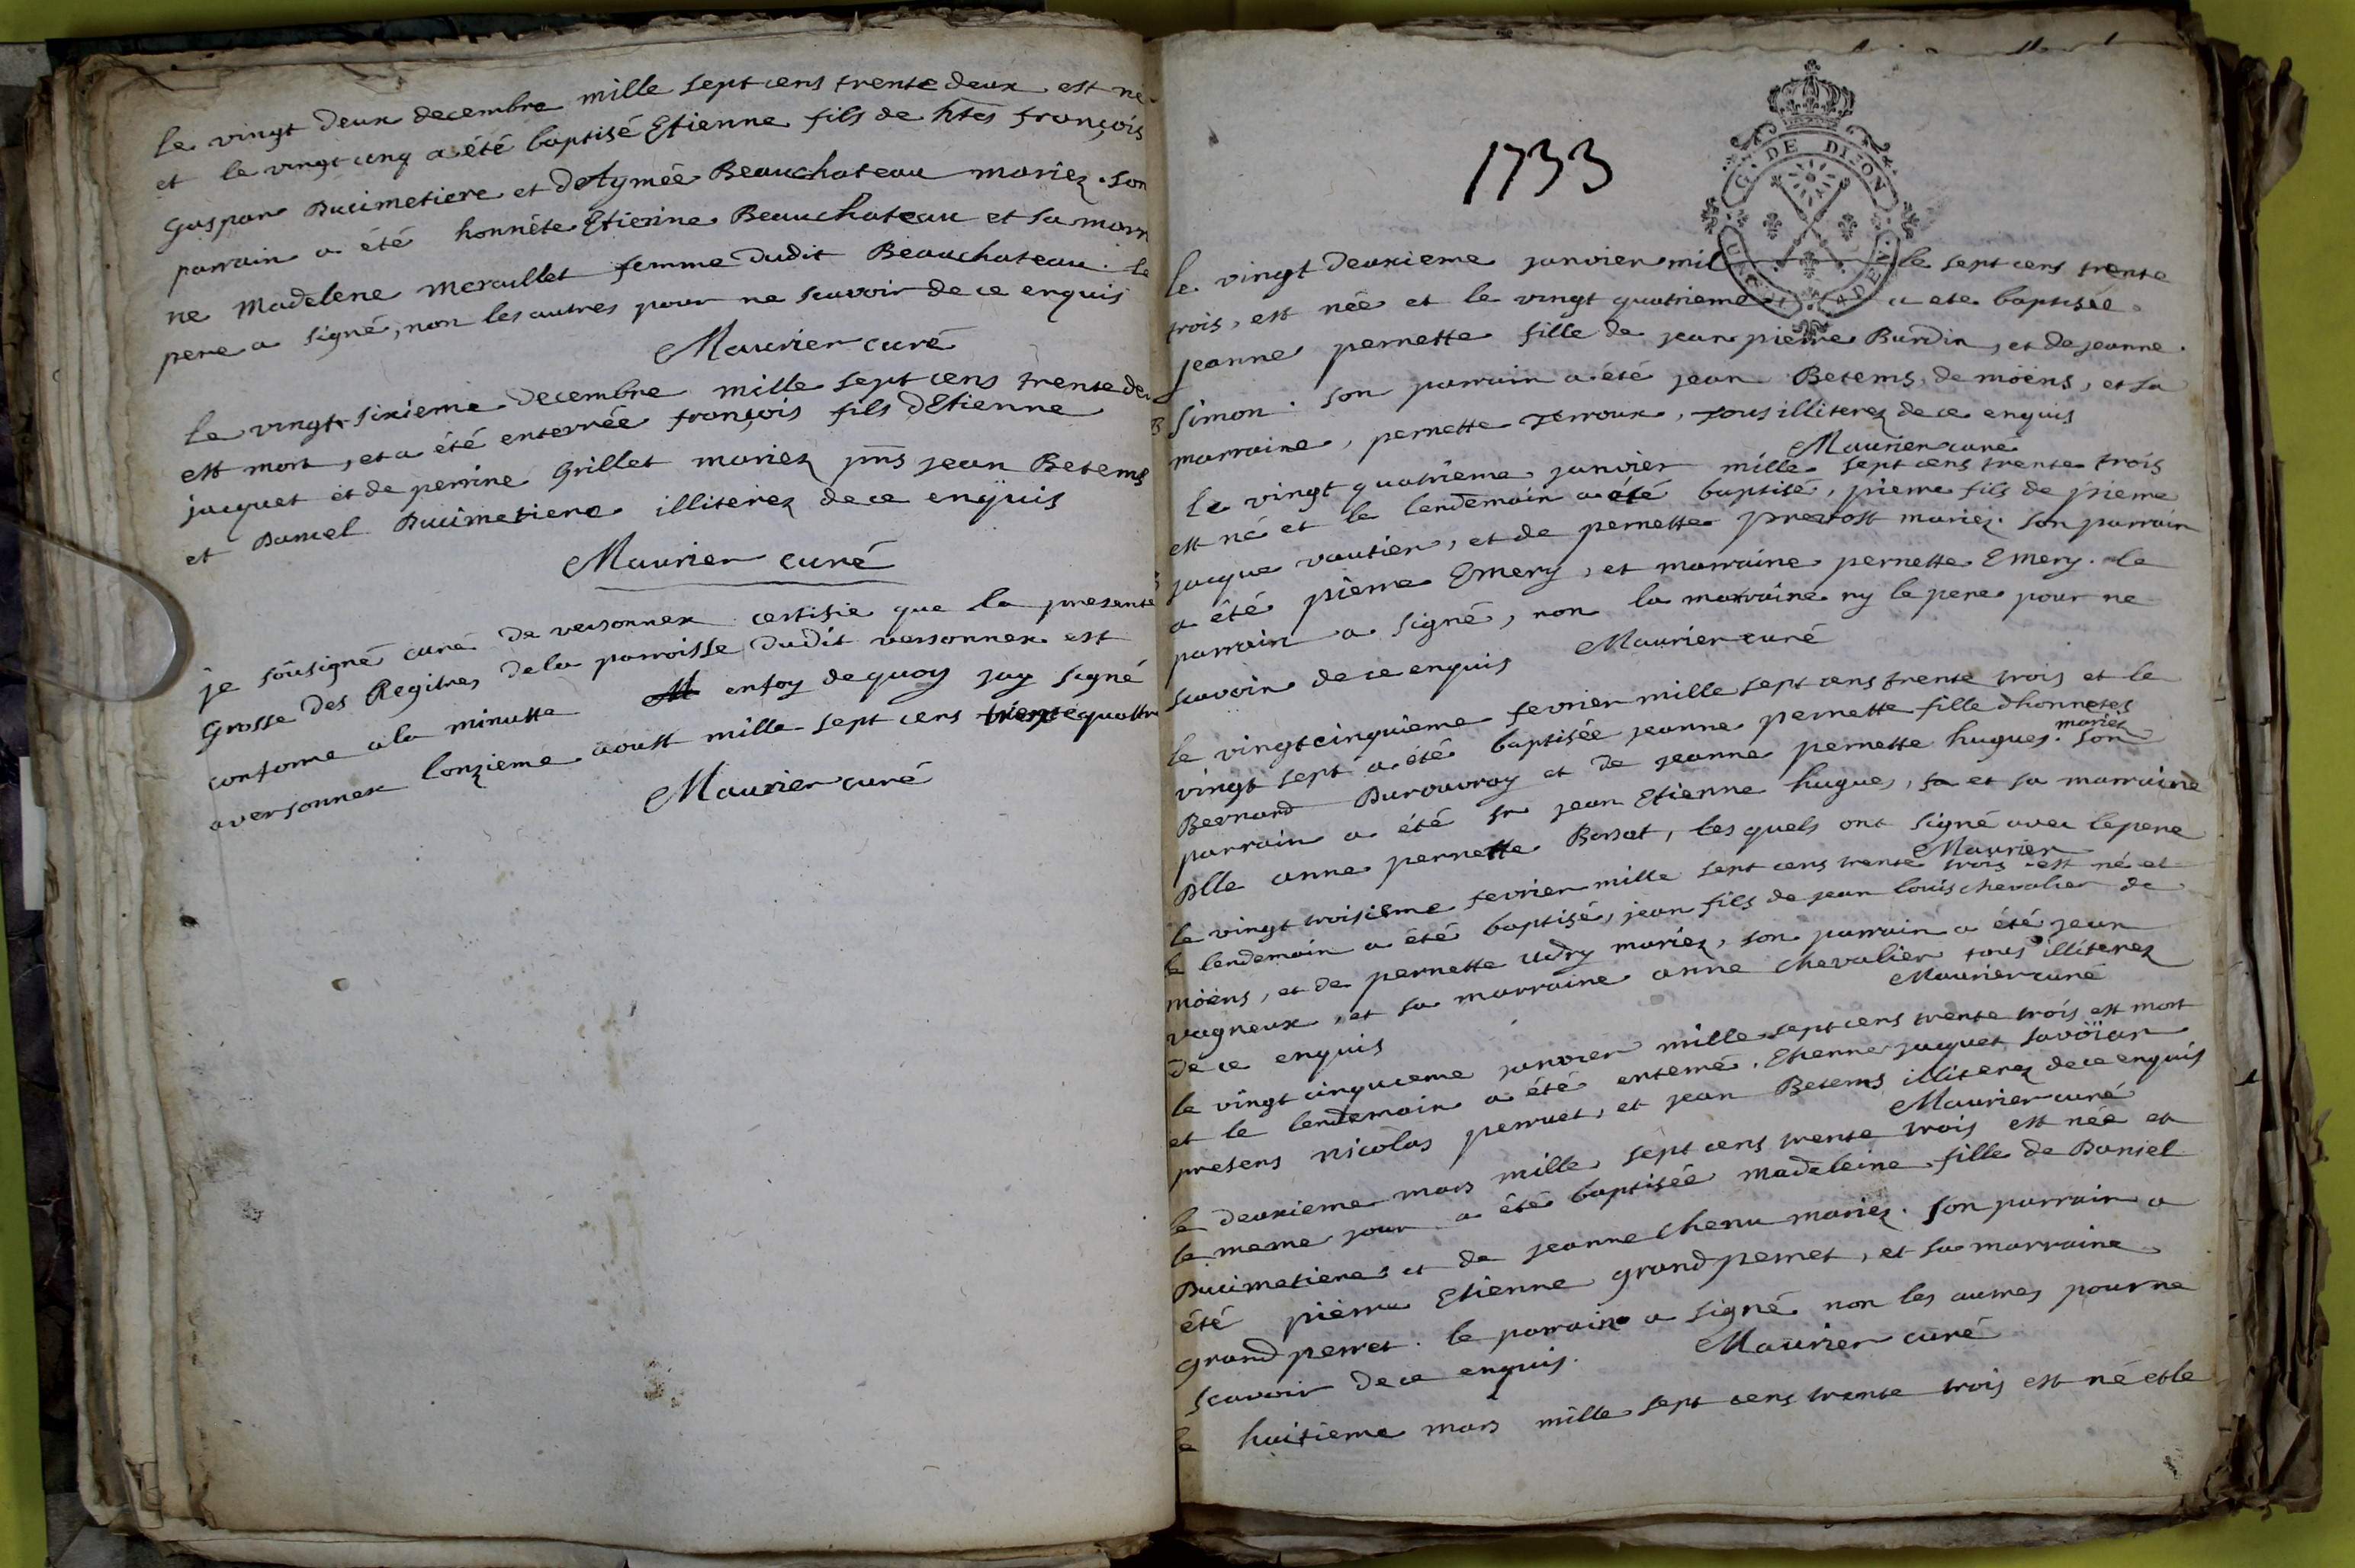 le vingt deux decembre mille sept cens trente deux est né
et le vingt cinq a été baptisé Etienne fils de htes françois
gaspar Ducimetiere et dAymée Beauchateau mariez. son
parrain a été honnête Etienne Beauchateau et sa marr
ne Madelene meraullet femme dudit Beauchateau. le
pere a signé, non les autres pour ne scavoir de ce enquis
Maurier curé
le vingt-sixieme decembre mille sept cens trente de
est mort, et a été enterrée françois fils dEtienne
jacquet et de perrine Grillet mariez pns jean Betems
et Daniel Ducimetiere illiterez de ce enquis
Maurier curé
je soûsigné curé de versonnex certifie que la presente
Grosse des Regitres de la parroisse dudit versonnex est
conforme a la minutte en foy de quoy jay signé
a versonnex lonzieme aoust mille sept cens trente quattre
Maurier curé
1733
G. DE DIJON
le vingt deuxieme janvier mil le sept cens trente
trois, est née et le vingt quatrieme a eté baptisée
jeanne pernette fille de jean pierre Burdin, et de jeanne
Simon. son parrain a été jean Betems de moëns, et sa
marraine, pernette terroux, tous illiterez de ce enquis
Maurier curé
le vingt quatrieme janvier mille sept cens trente trois
est né et le lendemain a été baptisé, pierre fils de pierre
jacque vautier, et de pernette prevost mariez. son parrain
a été pierre Emery, et marraine pernette Emery. le
parrain a signé, non la marraine ny le pere pour ne
scavoir de ce enquis Maurier curé
le vingtcinquieme fevrier mille sept cens trente trois et le
vingt sept a été baptisée jeanne pernette fille dhonnetes
Bernard Durouvray et de jeanne pernette hugues. mariés son
parrain a été sr jean Etienne hugues, sa et sa marraine
Dlle anne pernette Bossat, les quels ont signé avec le pere
Maurier
le vingt troisieme fevrier mille sept cens trente trois est né et
le lendemain a été baptisé, jean fils de jean louis chevalier de
moëns, et de pernette udry mariez, son parrain a été jean
vagneux, et sa marraine anne chevalier tous illiterez
de ce enquis Maurier curé
le vingt cinquieme janvier mille sept cens trente trois est mort
et le lendemain a été enterré. Etienne jacquet savoïar
presens nicolas perruet, et jean Betems illiterez de ce enquis
Maurier curé
le deuxieme mars mille sept cens trente trois est née et
le meme jour a été baptisée madeleine fille de Daniel
Ducimetiere et de jeanne chenu mariez. son parrain a
été pierre Etienne grandperret, et sa marraine
grandperret. le parrain a signé non les autres pour ne
scavoir de ce enquis. Maurier curé
le huitieme mars mille sept cens trente trois est né et le